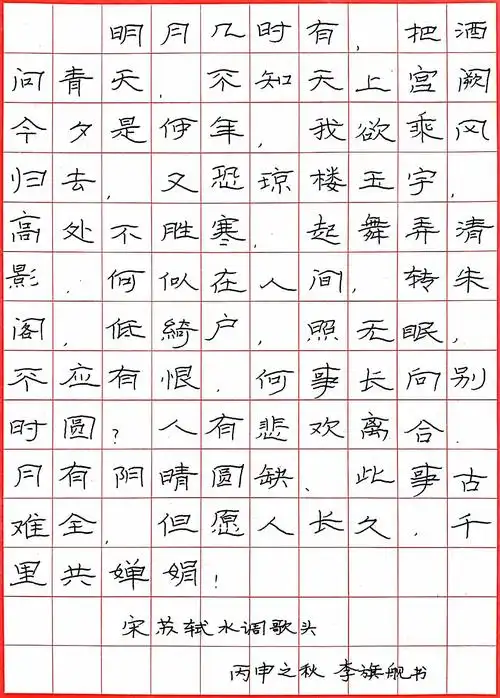 明月几时有，把酒
问青天，不知天上宫阙
今夕是何年，我欲乘风
归去，又恐琼楼玉宇，
高处不胜寒，起舞弄清
影，何似在人间，转朱
阁，低綺户，照无眠，
不应有恨，何事长向别
时圆？人有悲欢离合，
月有阴晴圆缺、此事古
难全，但愿人长久，千
里共婵娟！
宋苏轼水调歌头
丙申之秋 李旗舰书